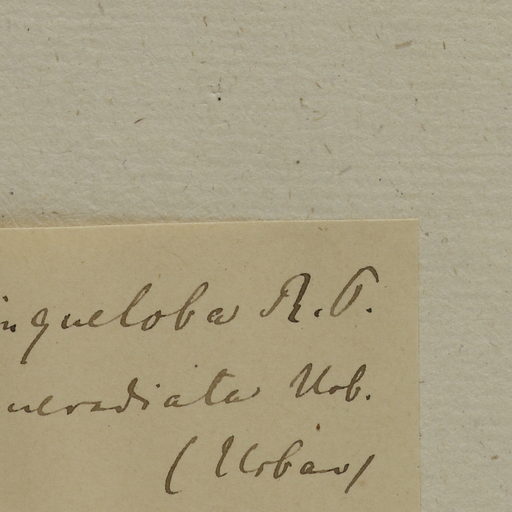 inqueloba R. P.
ueradiata Urb.
(Urban)